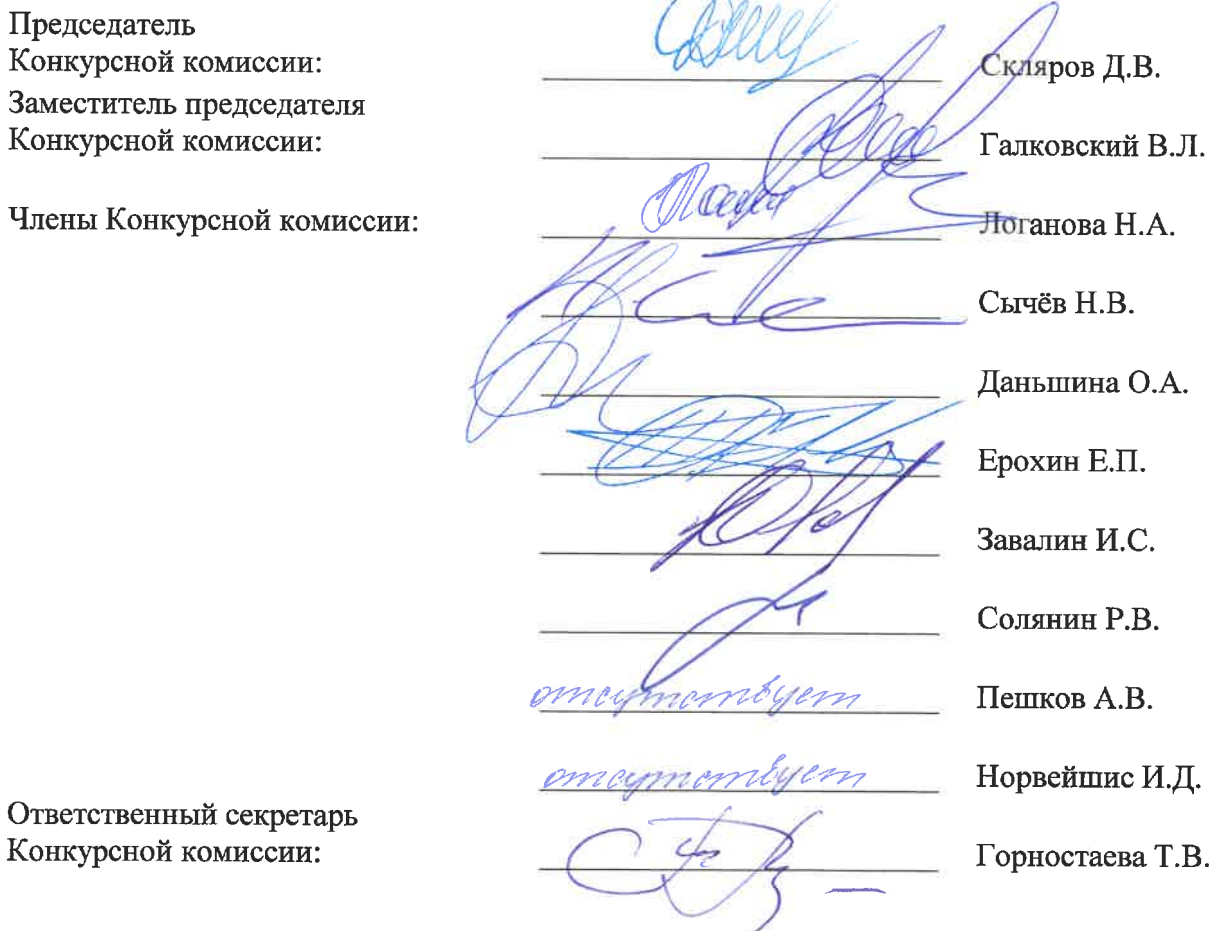 Председатель
Конкурсной комиссии: Скляров Д.В.
Заместитель председателя
Конкурсной комиссии: Галковский В.Л.
Члены Конкурсной комиссии: Логанова Н.А.
Сычёв Н.В.
Даньшина О.А.
Ерохин Е.П.
Завалин И.С.
Солянин Р.В.
отсутствует Пешков А.В.
отсутствует Норвейшис И.Д.
Ответственный секретарь
Конкурсной комиссии: Горностаева Т.В.